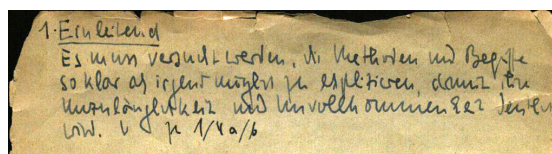 1. Einleitend
Es muss versucht werden, die Methoden und Begriffe
so klar als irgend möglich zu explizieren, damit ihre
Unzulänglichkeit und Unvollkommenheit deutlich
wird. zu 1/4a/b